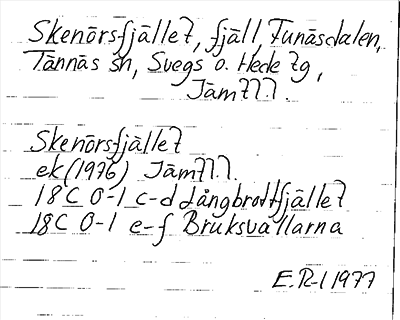 Skenörsfjället, fjäll, Funäsdalen,
Tännäs sn, Svegs o. Hede tg,
Jämtl.
Skenörsfjället
ek (1976) Jämtl.
18C 0-1 c-d Långbrottfjället
18C 0-1 e-f Bruksvallarna
E.R-l 1977